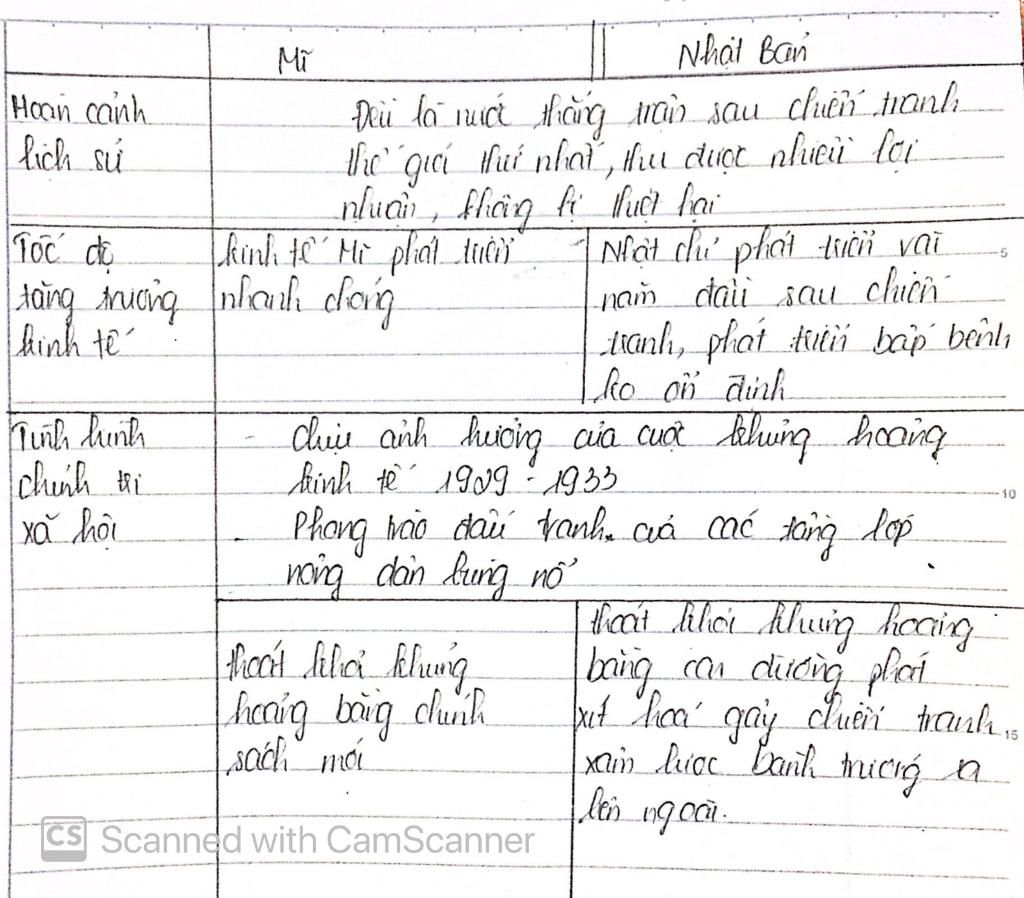 Mĩ
Nhật Bản
Hoàn cảnh
lịch sử
Đều là nước thắng trận sau chiến tranh
thế giới thứ nhất, thu được nhiều lợi
nhuận, không bị thiệt hại
Tốc độ
tăng trưởng
kinh tế
kinh tế Mĩ phát triển
nhanh chóng
Nhật chỉ phát triển vài
năm đầu sau chiến
tranh, phát triển bấp bênh
ko ổn định
Tình hình
chính trị
xã hội
- chịu ảnh hưởng của cuộc khủng hoảng
kinh tế 1929 - 1933
- Phong trào đấu tranh của các tầng lớp
nông dân bùng nổ
thoát khỏi khủng
hoảng bằng chính
sách mới
thoát khỏi khủng hoảng
bằng con đường phát
xít hoá gây chiến tranh
xâm lược bành trướng ra
bên ngoài.
CS Scanned with CamScanner
5
10
15